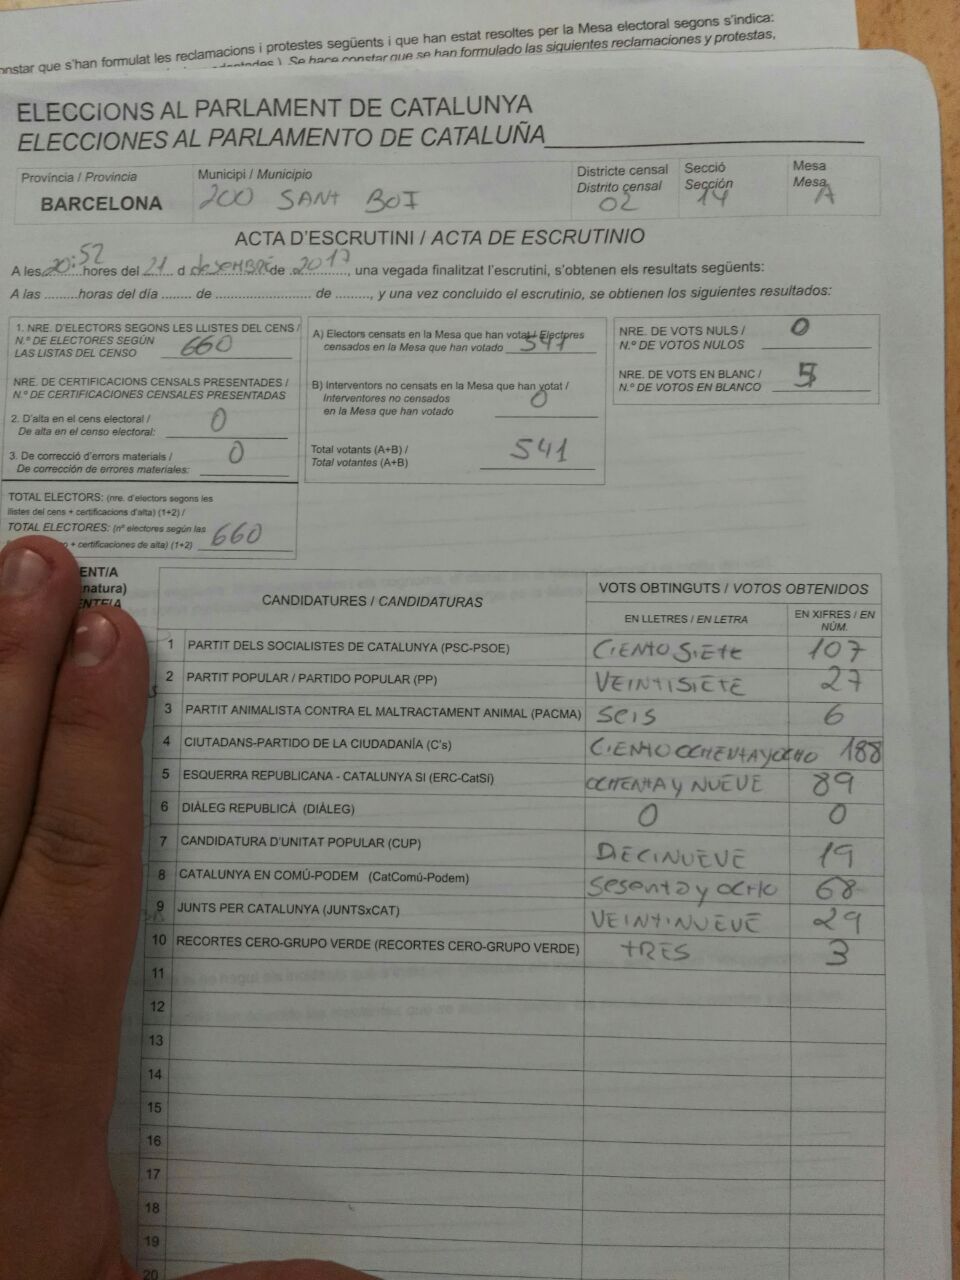 onstar que s'han formulat les reclamacions i protestes següents i que han estat resoltes per la Mesa electoral segons s'indica:
Se hace constar que se han formulado las siguientes reclamaciones y protestas,
ELECCIONS AL PARLAMENT DE CATALUNYA
ELECCIONES AL PARLAMENTO DE CATALUÑA
Província / Provincia
BARCELONA
Municipi / Municipio
200 SANT BOI
Districte censal
Distrito censal
02
Secció
Sección
14
Mesa
Mesa
A
ACTA D'ESCRUTINI / ACTA DE ESCRUTINIO
A les 20:52 hores del 21 d desembre de 2017, una vegada finalitzat l'escrutini, s'obtenen els resultats següents:
A las .........horas del día ........ de ......................... de ........., y una vez concluido el escrutinio, se obtienen los siguientes resultados:
1. NRE. D'ELECTORS SEGONS LES LLISTES DEL CENS /
N.º DE ELECTORES SEGÚN
LAS LISTAS DEL CENSO 660
NRE. DE CERTIFICACIONS CENSALS PRESENTADES /
N.º DE CERTIFICACIONES CENSALES PRESENTADAS
2. D'alta en el cens electoral /
De alta en el censo electoral: 0
3. De correcció d'errors materials /
De corrección de errores materiales: 0
TOTAL ELECTORS: (nre. d'electors segons les
llistes del cens + certificacions d'alta) (1+2) /
TOTAL ELECTORES: (nº electores según las
+ certificaciones de alta) (1+2) 660
A) Electors censats en la Mesa que han votat / Electores
censados en la Mesa que han votado 541
B) Interventors no censats en la Mesa que han votat /
Interventores no censados
en la Mesa que han votado 0
Total votants (A+B) /
Total votantes (A+B) 541
NRE. DE VOTS NULS /
N.º DE VOTOS NULOS 0
NRE. DE VOTS EN BLANC /
N.º DE VOTOS EN BLANCO 5
ENT/A
natura)
ENTE/A
CANDIDATURES / CANDIDATURAS
VOTS OBTINGUTS / VOTOS OBTENIDOS
EN LLETRES / EN LETRA
EN XIFRES / EN
NÚM.
1 PARTIT DELS SOCIALISTES DE CATALUNYA (PSC-PSOE) CIENTO SIETE 107
2 PARTIT POPULAR / PARTIDO POPULAR (PP) VEINTISIETE 27
3 PARTIT ANIMALISTA CONTRA EL MALTRACTAMENT ANIMAL (PACMA) SEIS 6
4 CIUTADANS-PARTIDO DE LA CIUDADANÍA (C's) CIENTO OCHENTA Y OCHO 188
5 ESQUERRA REPUBLICANA - CATALUNYA SI (ERC-CatSí) OCHENTA Y NUEVE 89
6 DIÀLEG REPUBLICÀ (DIÀLEG) 0 0
7 CANDIDATURA D'UNITAT POPULAR (CUP) DIECINUEVE 19
8 CATALUNYA EN COMÚ-PODEM (CatComú-Podem) Sesenta y OCHO 68
9 JUNTS PER CATALUNYA (JUNTSxCAT) VEINTINUEVE 29
10 RECORTES CERO-GRUPO VERDE (RECORTES CERO-GRUPO VERDE) TRES 3
11
12
13
14
15
16
17
18
19
20